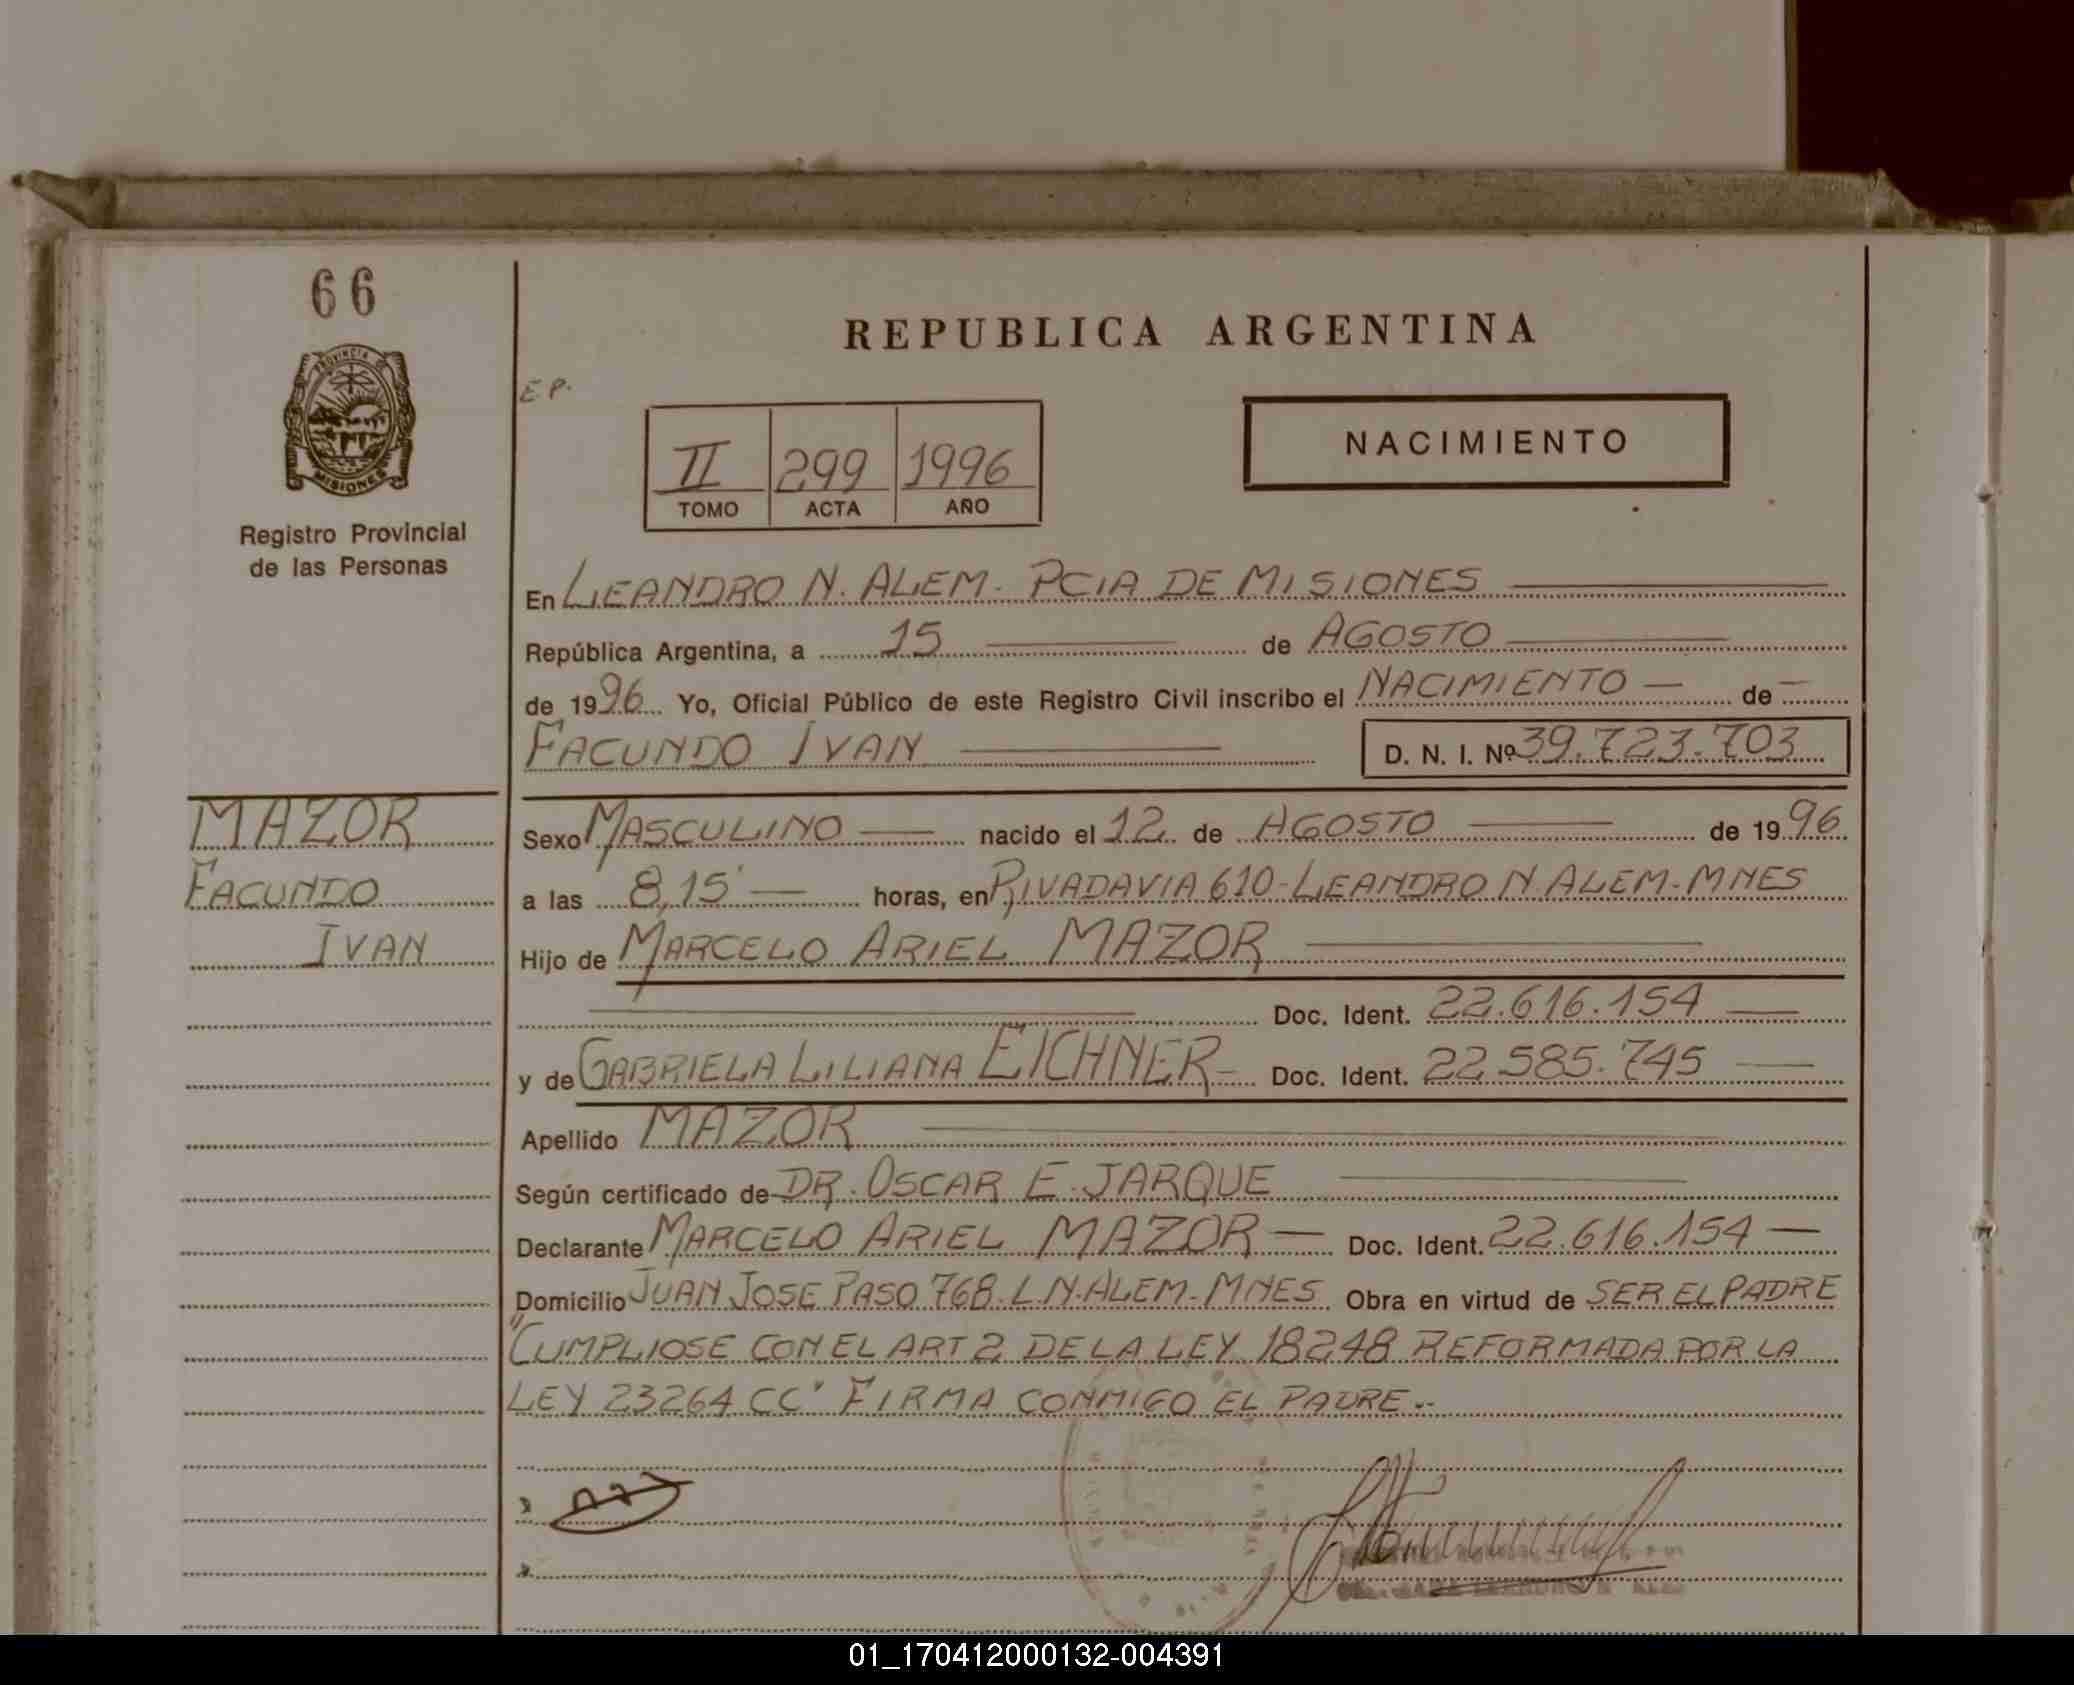 66
PROVINCIA
MISIONES
Registro Provincial
de las Personas
REPUBLICA ARGENTINA
E.P.
NACIMIENTO
II 299 1996
TOMO ACTA AÑO
En LEANDRO N. ALEM - PCIA DE MISIONES
República Argentina, a 15 de AGOSTO
de 1996 Yo, Oficial Público de este Registro Civil inscribo el NACIMIENTO — de —
FACUNDO IVAN D. N. I. Nº 39.723.703
MAZOR
FACUNDO
IVAN
Sexo MASCULINO — nacido el 12 de AGOSTO — de 1996
a las 8,15' — horas, en RIVADAVIA 610 - LEANDRO N. ALEM - MNES
Hijo de MARCELO ARIEL MAZOR
Doc. Ident. 22.616.154 —
y de GABRIELA LILIANA EICHNER - Doc. Ident. 22.585.745 —
Apellido MAZOR
Según certificado de DR. OSCAR E. JARQUE
Declarante MARCELO ARIEL MAZOR — Doc. Ident. 22.616.154 —
Domicilio JUAN JOSE PASO 768 - L.N. ALEM - MNES Obra en virtud de SER EL PADRE
"CUMPLIOSE CON EL ART 2 DE LA LEY 18248 REFORMADA POR LA
LEY 23264 CC" FIRMA CONMIGO EL PADRE.-
01_170412000132-004391